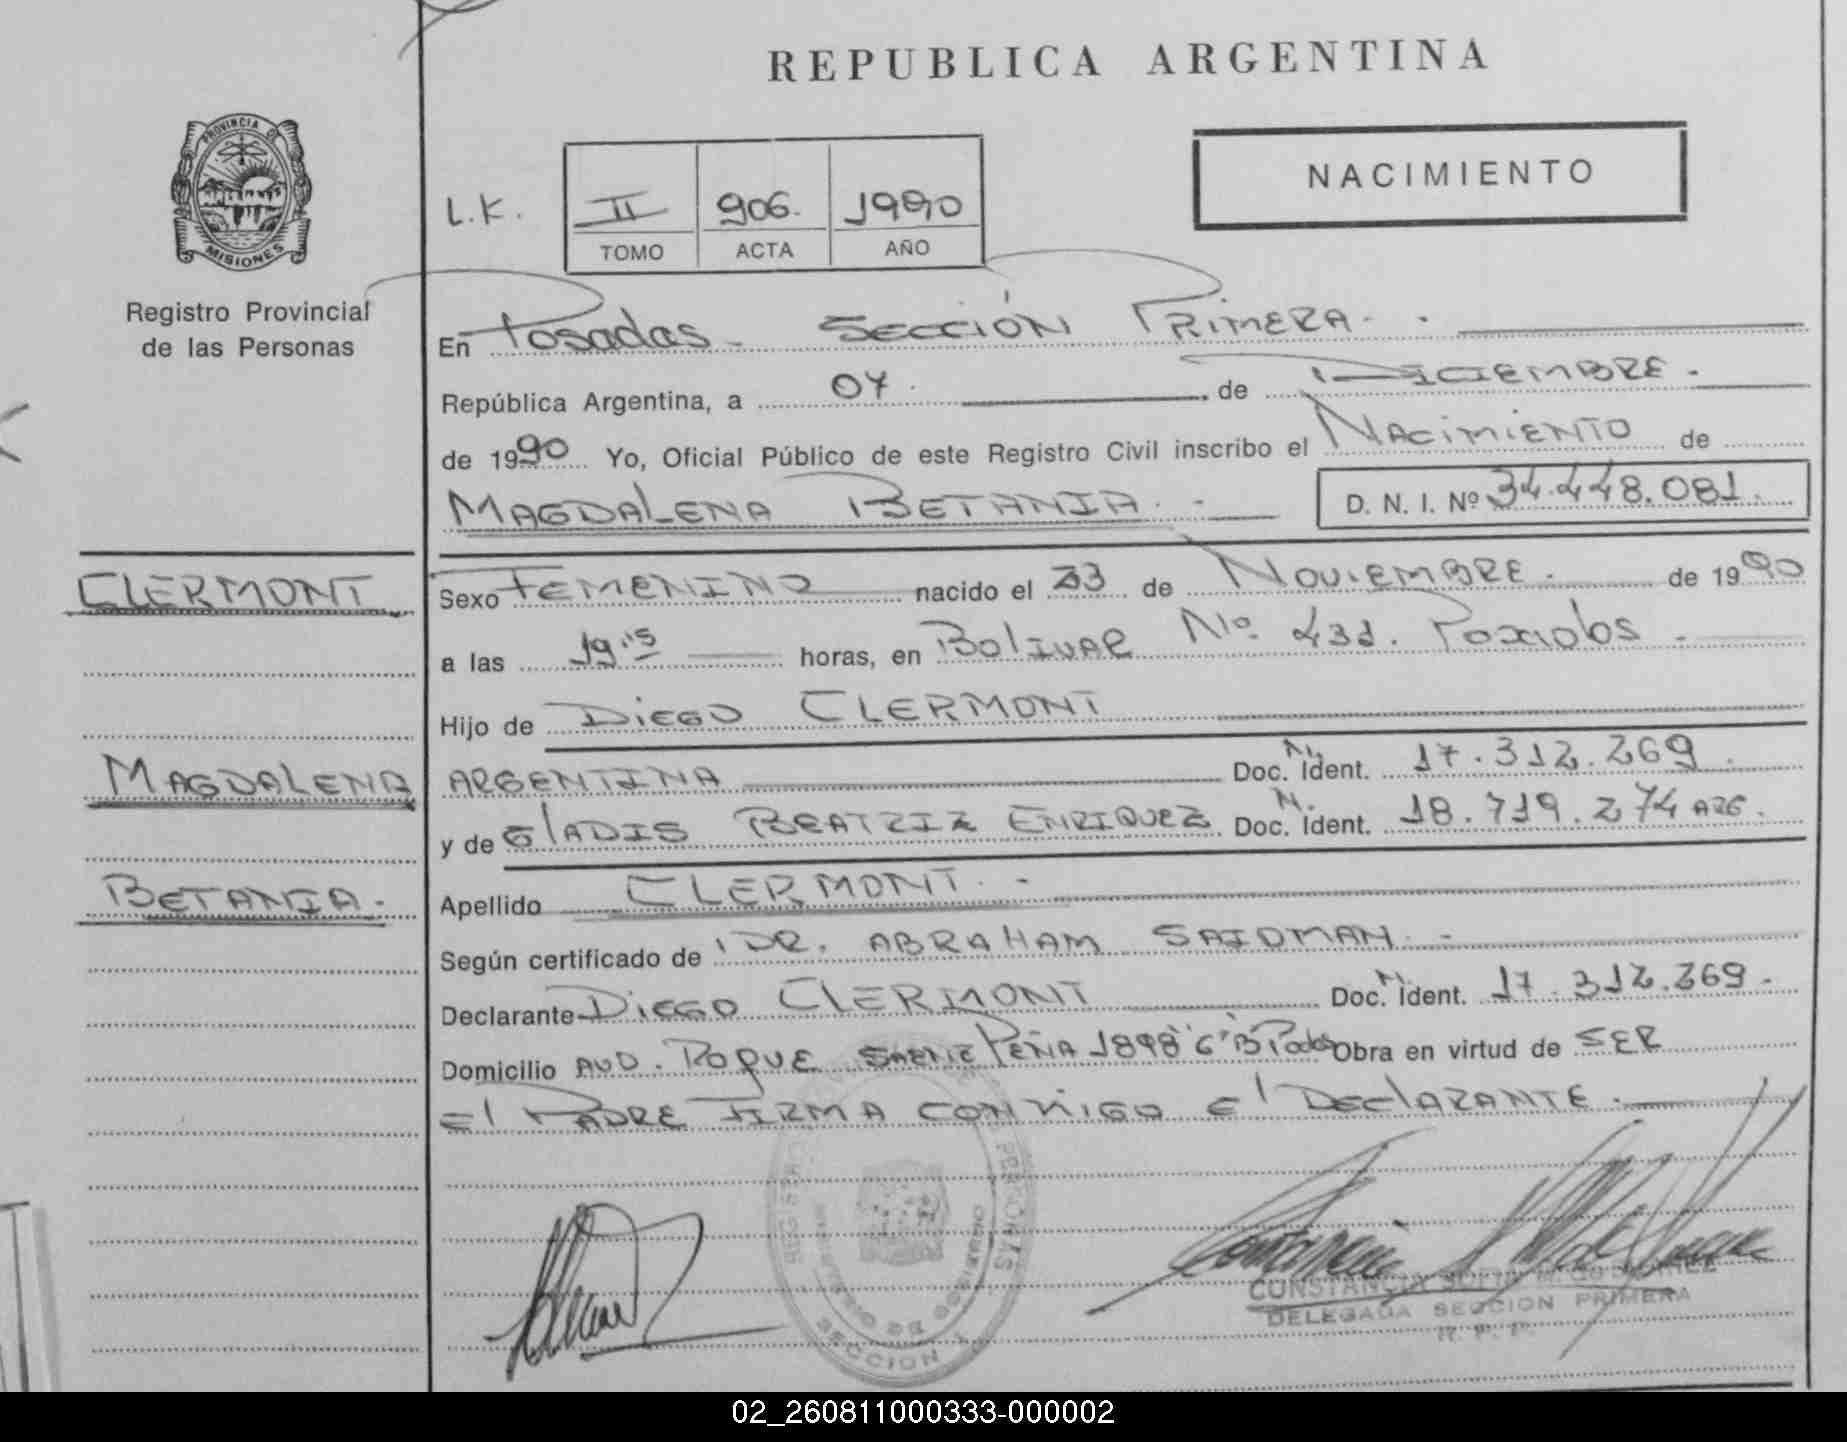 REPUBLICA ARGENTINA
PROVINCIA D
MISIONES
Registro Provincial
de las Personas
L.K.
II 906. 1990
TOMO ACTA AÑO
NACIMIENTO
En Posadas - SECCIÓN PRIMERA.
República Argentina, a 07. , de DICIEMBRE.
de 1990 Yo, Oficial Público de este Registro Civil inscribo el NACIMIENTO de
MAGDALENA BETANIA. - D. N. I. Nº 34.448.081.
CLERMONT
MAGDALENA
BETANIA.
Sexo FEMENINO nacido el 23 de NOVIEMBRE. de 1990
a las 19 15 horas, en BOLIVAR Nº 431. Posadas -
Hijo de DIEGO CLERMONT
ARGENTINA Doc. Ident. 17.312.269.
y de GlADIS BEATRIZ ENRIQUEZ Doc. Ident. 18.719.274 ARG.
Apellido CLERMONT. -
Según certificado de DR. ABRAHAM SAIDMAN. -
Declarante DIEGO CLERMONT Doc. Ident. 17.312.269.
Domicilio AVD. ROQUE SAENZ PEÑA 1898 6º B Pdas Obra en virtud de SER
El PADRE FIRMA CONMIGO El DEClARANTE.
CONSTANCIA
DELEGADA SECCION PRIMERA
R. P. P.
SECCION 1
02_260811000333-000002